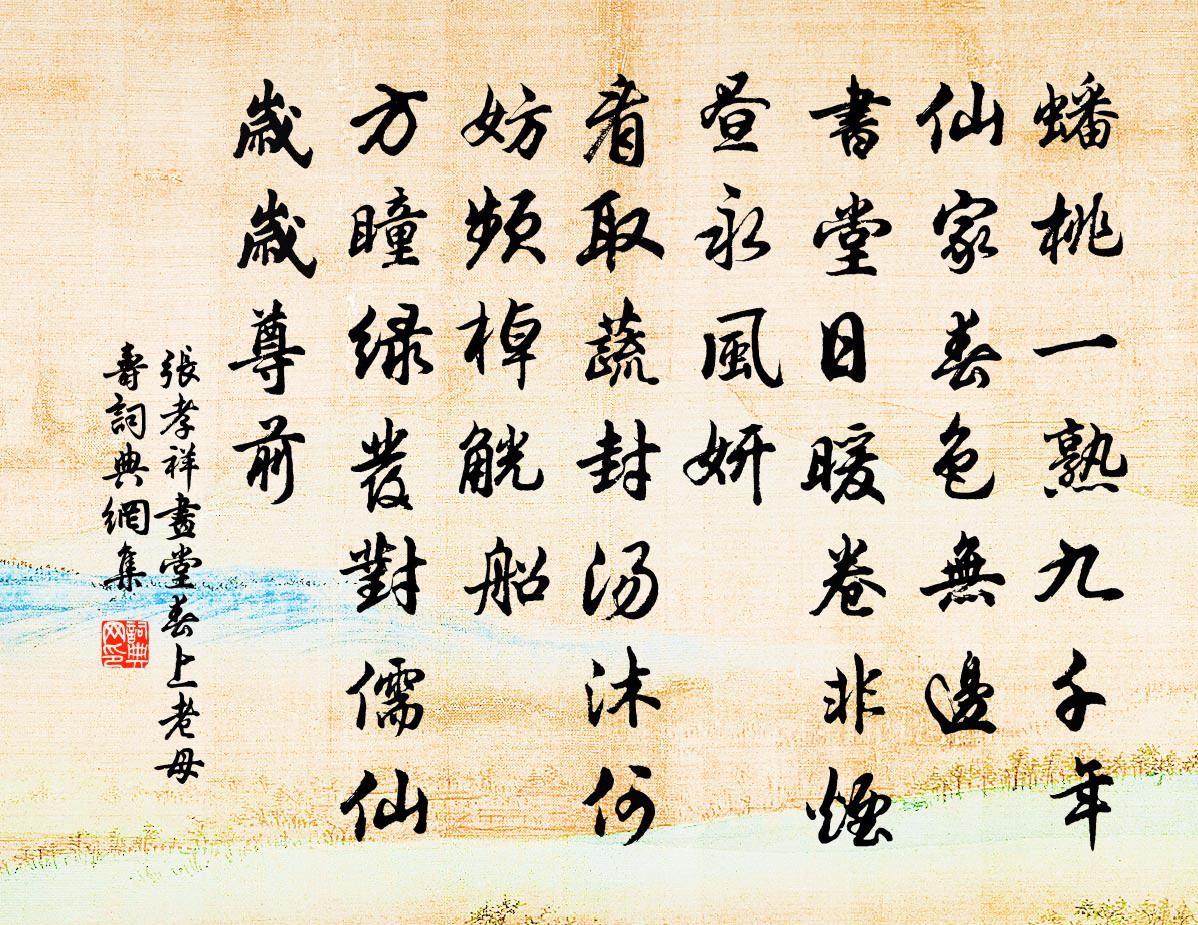 蟠桃一熟九千年
仙家春色無邊
書堂日暖卷非煙
昼永風妍
看取蔬封湯沐何
妨頻棹觥船
方瞳綠發對儒仙
歲歲尊前
張孝祥畫堂春上老母
壽詞典網集
詞典
网印